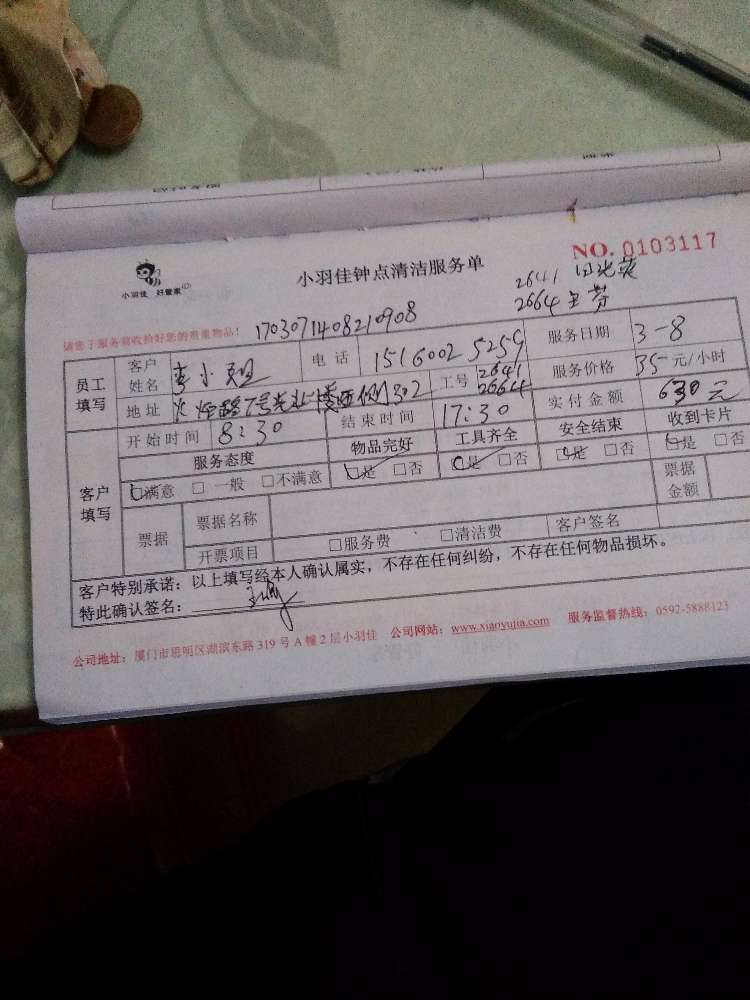 小羽佳 好管家
小羽佳钟点清洁服务单
NO. 0103117
2641 田
2664 王芳
请您于服务前收拾好您的贵重物品！
1703071408210908
员工填写
客户姓名 李小姐 电话 15160025259 服务日期 3-8
地址 火炬路7号光业楼西侧302 工号 2641 2664 服务价格 35元/小时
开始时间 8:30 结束时间 17:30 实付金额 630元
客户填写
服务态度 物品完好 工具齐全 安全结束 收到卡片
☑满意 □一般 □不满意 ☑是 □否 ☑是 □否 ☑是 □否 ☑是 □否
票据 票据名称 票据金额
开票项目 □服务费 □清洁费 客户签名
客户特别承诺：以上填写经本人确认属实，不存在任何纠纷，不存在任何物品损坏。
特此确认签名：
公司地址：厦门市思明区湖滨东路319号A幢2层小羽佳 公司网站：www.xiaoyujia.com 服务监督热线：0592-5888123